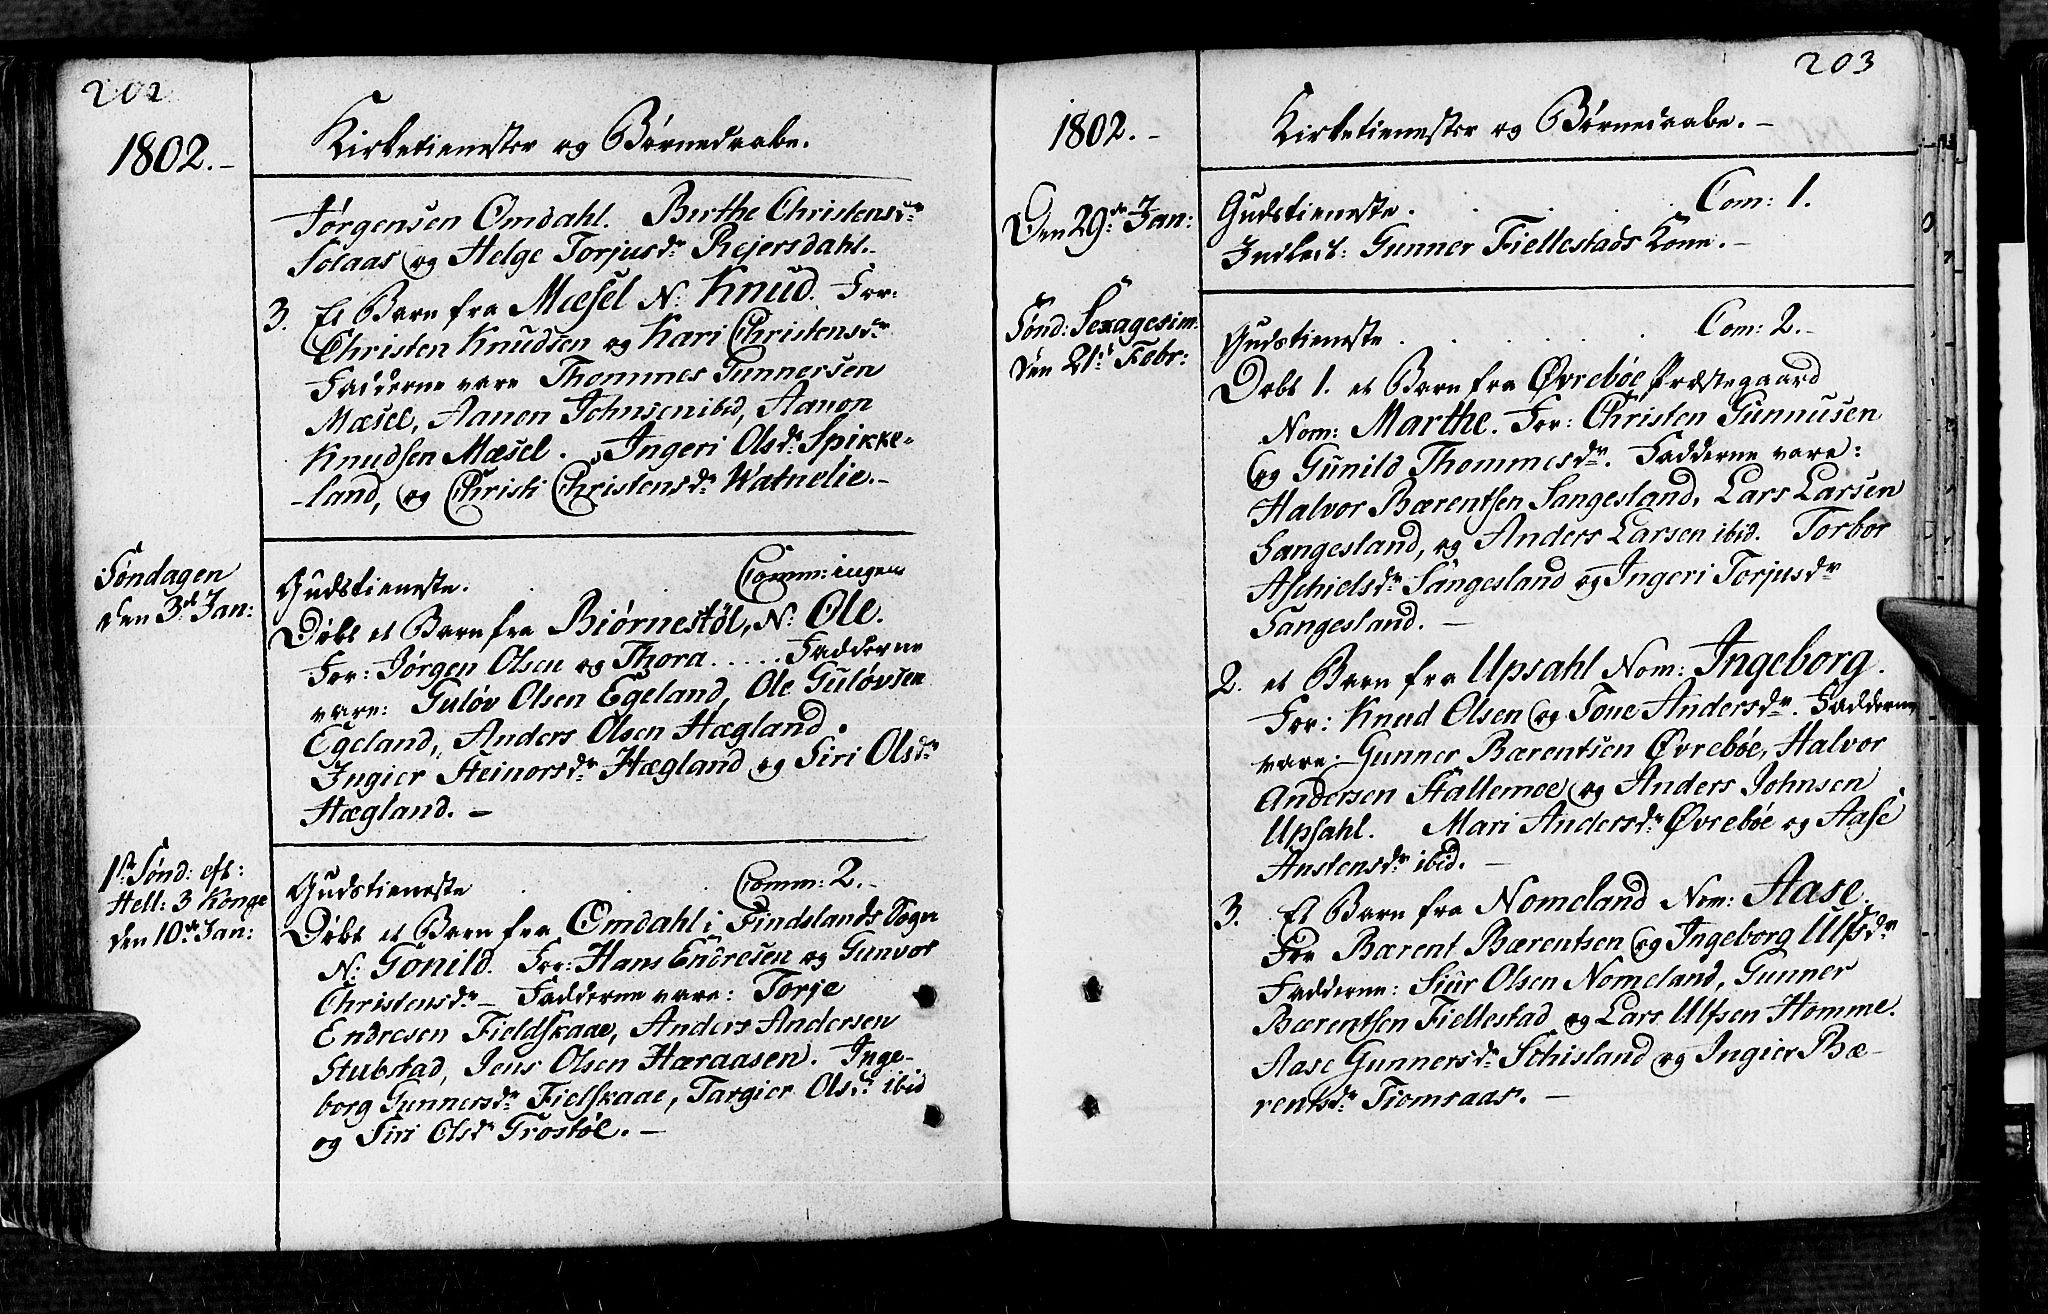 202
1802.-
Kirketienester og Børnedaabe.
Jørgensen Omdahl. Birthe Christensdr
Solaas og Helge Torjusdr Rejersdahl.-
3. Et Barn fra Mæsel N: Knud. For:
Christen Knudsen og Kari Christensdr
Fadderne vare Thommes Gunnersen
Mæsel, Aanon Johnsen ibid, Aanon
Knudsen Mæsel. Ingeri Olsdr Spikke-
-land, og Christi Christensdr Watnelie.-
Søndagen
den 3de Jan:
Gudstieneste. Comm: ingen
Døbt et Barn fra Biørnestøl, N: Ole.
For: Jørgen Olsen og Thora ..... Fadderne
vare: Guløv Olsen Egeland, Ole Guløvsen
Egeland, Anders Olsen Hægland.
Ingier Steinorsdr Hægland og Siri Olsdr
Hægland. -
1ste Sønd: eft:
Hell: 3 Konge
den 10de Jan:
Gudstieneste . . . Comm: 2.-
Døbt et Barn fra Omdahl i Findslands Sogn
N: Gønild. For: Hans Endresen og Gunvor
Christensdr - Fadderne vare: Torje
Endresen Fieldskaae, Anders Andersen
Stubstad, Jens Olsen Hæraasen. Inge-
borg Gunnersdr Fielskaae, Targier Olsdr ibid
og Siri Olsdr Grostøl. -
203
1802.-
Kirketienester og Børnedaabe. -
Den 29de Jan:
Gudstieneste. . . . Com: 1.
Indledt: Gunner Fiellestads Kone. -
Sønd: Sexagesim.
den 21de Febr:
Gudstieneste . . . . . Com: 2.-
Døbt 1. et Barn fra Øvrebøe Præstegaard
Nom: Marthe. For: Christen Gunnusen
og Gunild Thommesdr. Fadderne vare:
Halvor Bærentsen Sangesland, Lars Larsen
Sangesland, og Anders Larsen ibid. Torbor
Aschielsdr Sangesland og Ingeri Torjusdr
Sangesland. -
2. et Barn fra Upsahl Nom: Ingeborg.
For: Knud Olsen og Tone Andersdr. Fadderne
vare: Gunner Bærentsen Øvrebøe, Halvor
Andersen Stallemoe og Anders Johnsen
Upsahl. Mari Andersdr Øvrebøe og Aase
Anstensdr ibid. -
3. Et Barn fra Nomeland Nom: Aase.
For Bærent Bærentsen og Ingeborg Ulfsdr
Fadderne: Siur Olsen Nomeland, Gunner
Bærentsen Fiellestad og Lars Ulfsen Homme.
Aase Gunnersdr Schisland og Ingier Bæ-
rentsdr Fiomraas. -